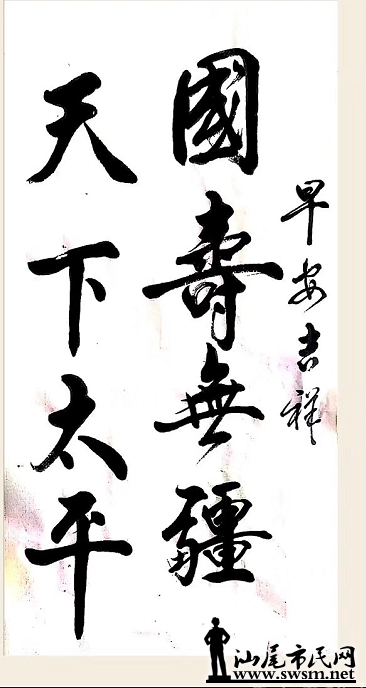 早安吉祥
國壽無疆
天下太平
汕尾市民网
www.swsm.net